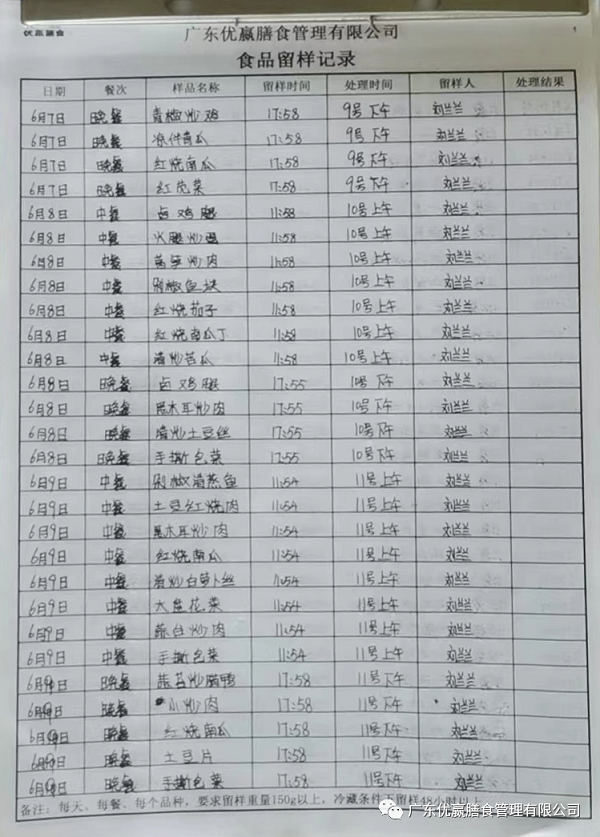 优赢膳食
广东优赢膳食管理有限公司
食品留样记录
日期 餐次 样品名称 留样时间 处理时间 留样人 处理结果
6月7日 晚餐 青椒炒鸡 17:58 9号下午 刘兰兰
6月7日 晚餐 凉拌青瓜 17:58 9号下午 刘兰兰
6月7日 晚餐 红烧南瓜 17:58 9号下午 刘兰兰
6月7日 晚餐 红苋菜 17:58 9号下午 刘兰兰
6月8日 中餐 卤鸡腿 11:58 10号上午 刘兰兰
6月8日 中餐 火腿炒蛋 11:58 10号上午 刘兰兰
6月8日 中餐 莴笋炒肉 11:58 10号上午 刘兰兰
6月8日 中餐 剁椒鱼块 11:58 10号上午 刘兰兰
6月8日 中餐 红烧茄子 11:58 10号上午 刘兰兰
6月8日 中餐 红烧南瓜丁 11:58 10号上午 刘兰兰
6月8日 中餐 清炒苦瓜 11:58 10号上午 刘兰兰
6月8日 晚餐 卤鸡腿 17:55 10号下午 刘兰兰
6月8日 晚餐 黑木耳炒肉 17:55 10号下午 刘兰兰
6月8日 晚餐 清炒土豆丝 17:55 10号下午 刘兰兰
6月8日 晚餐 手撕包菜 17:55 10号下午 刘兰兰
6月9日 中餐 剁椒清蒸鱼 11:54 11号上午 刘兰兰
6月9日 中餐 土豆红烧肉 11:54 11号上午 刘兰兰
6月9日 中餐 黑木耳炒肉 11:54 11号上午 刘兰兰
6月9日 中餐 红烧南瓜 11:54 11号上午 刘兰兰
6月9日 中餐 清炒白萝卜丝 11:54 11号上午 刘兰兰
6月9日 中餐 大盆花菜 11:54 11号上午 刘兰兰
6月9日 中餐 炒肉 11:54 11号上午 刘兰兰
6月9日 中餐 手撕包菜 11:54 11号上午 刘兰兰
6月9日 晚餐 炒鸭 17:58 11号下午 刘兰兰
6月9日 晚餐 小炒肉 17:58 11号下午 刘兰兰
6月9日 晚餐 红烧南瓜 17:58 11号下午 刘兰兰
6月9日 晚餐 土豆片 17:58 11号下午 刘兰兰
6月9日 晚餐 手撕包菜 17:58 11号下午 刘兰兰
备注：每天、每餐、每个品种，要求留样重量150g以上，冷藏条件下留样48小时以上
广东优赢膳食管理有限公司